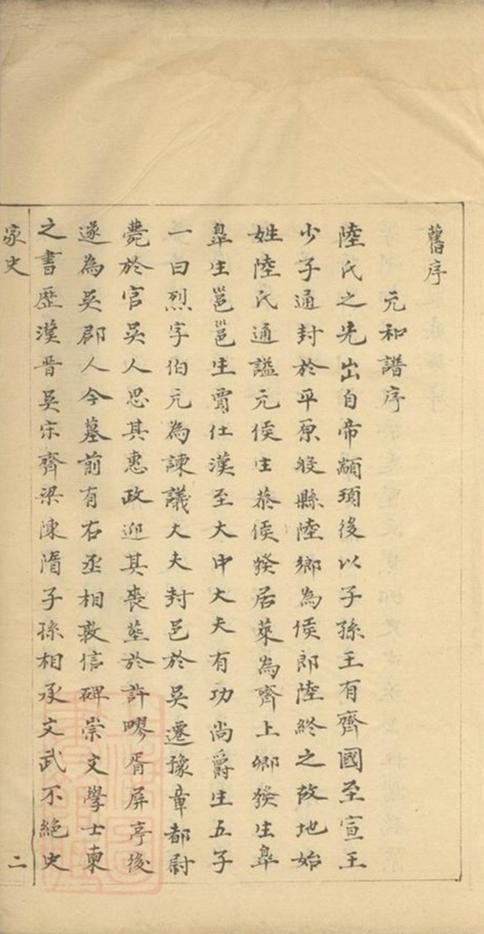 舊序
元和譜序
陸氏之先出自帝顓頊後以子孫王有齊國至宣王
少子通封於平原般縣陸鄉為侯即陸終之故地始
姓陸氏通謚元侯生恭侯發居萊為齊上卿發生皐
皐生邕邕生賈仕漢至大中大夫有功尚爵生五子
一曰烈字伯元為諫議大夫封邑於吳遷豫章都尉
薨於官吳人思其惠政迎其喪葬於許㽟胥屏亭後
遂為吳郡人今墓前有右丞相敦信碑崇文學士東
之書歷漢晉吳宋齊梁陳隋子孫相承文武不絕史
家史
二